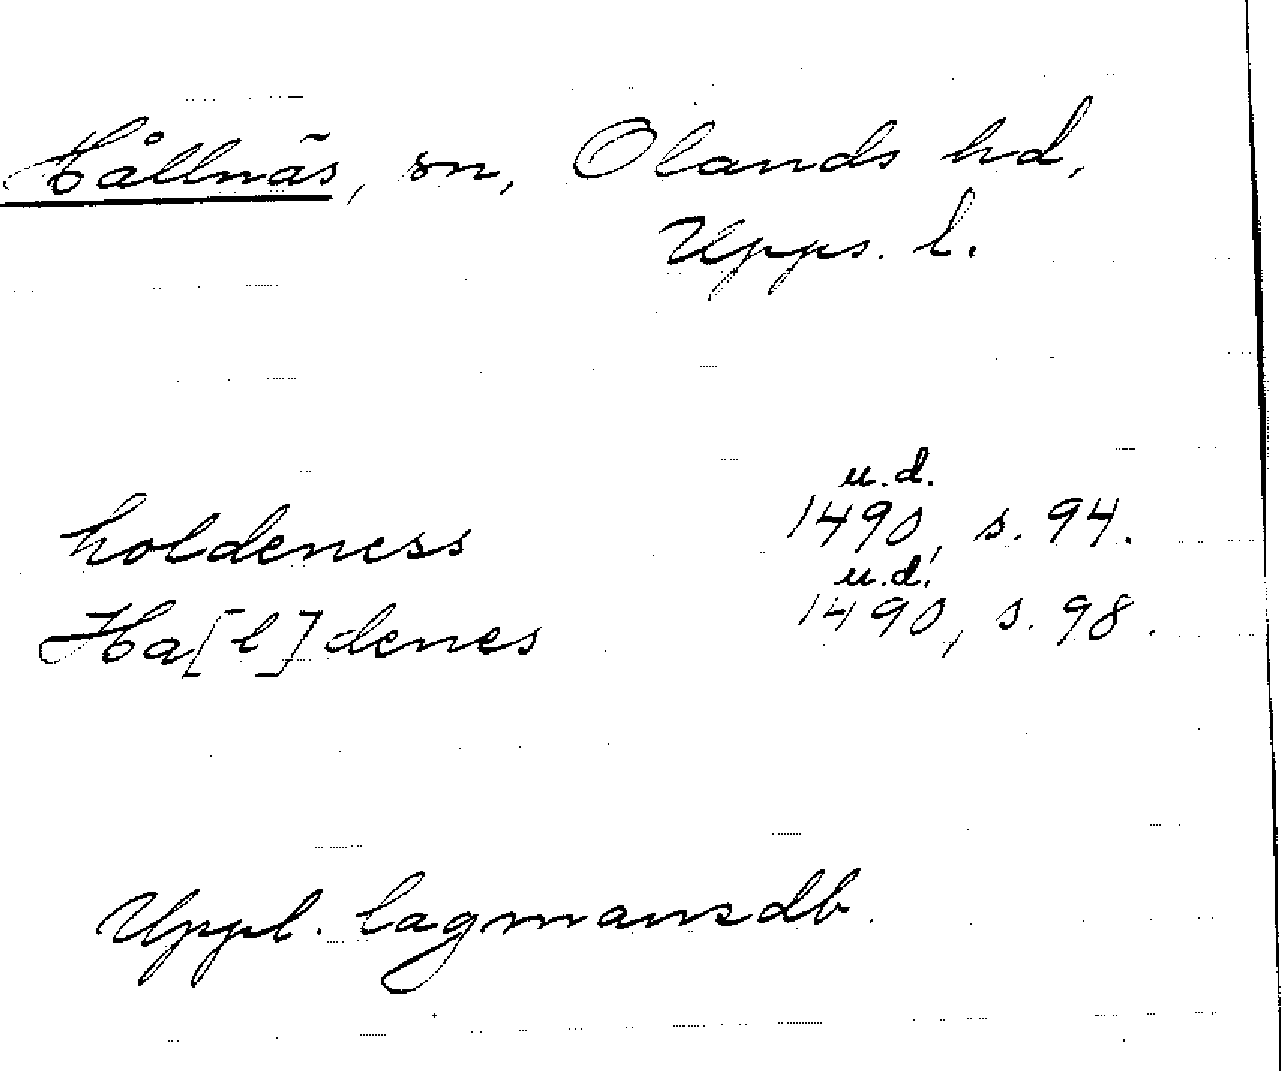 Hållnäs, sn, Olands hd,
Upps. l.
u.d.
holdeness 1490, s. 94.
u.d.
Ha[l]denes 1490, s. 98.
Uppl. lagmansdb.